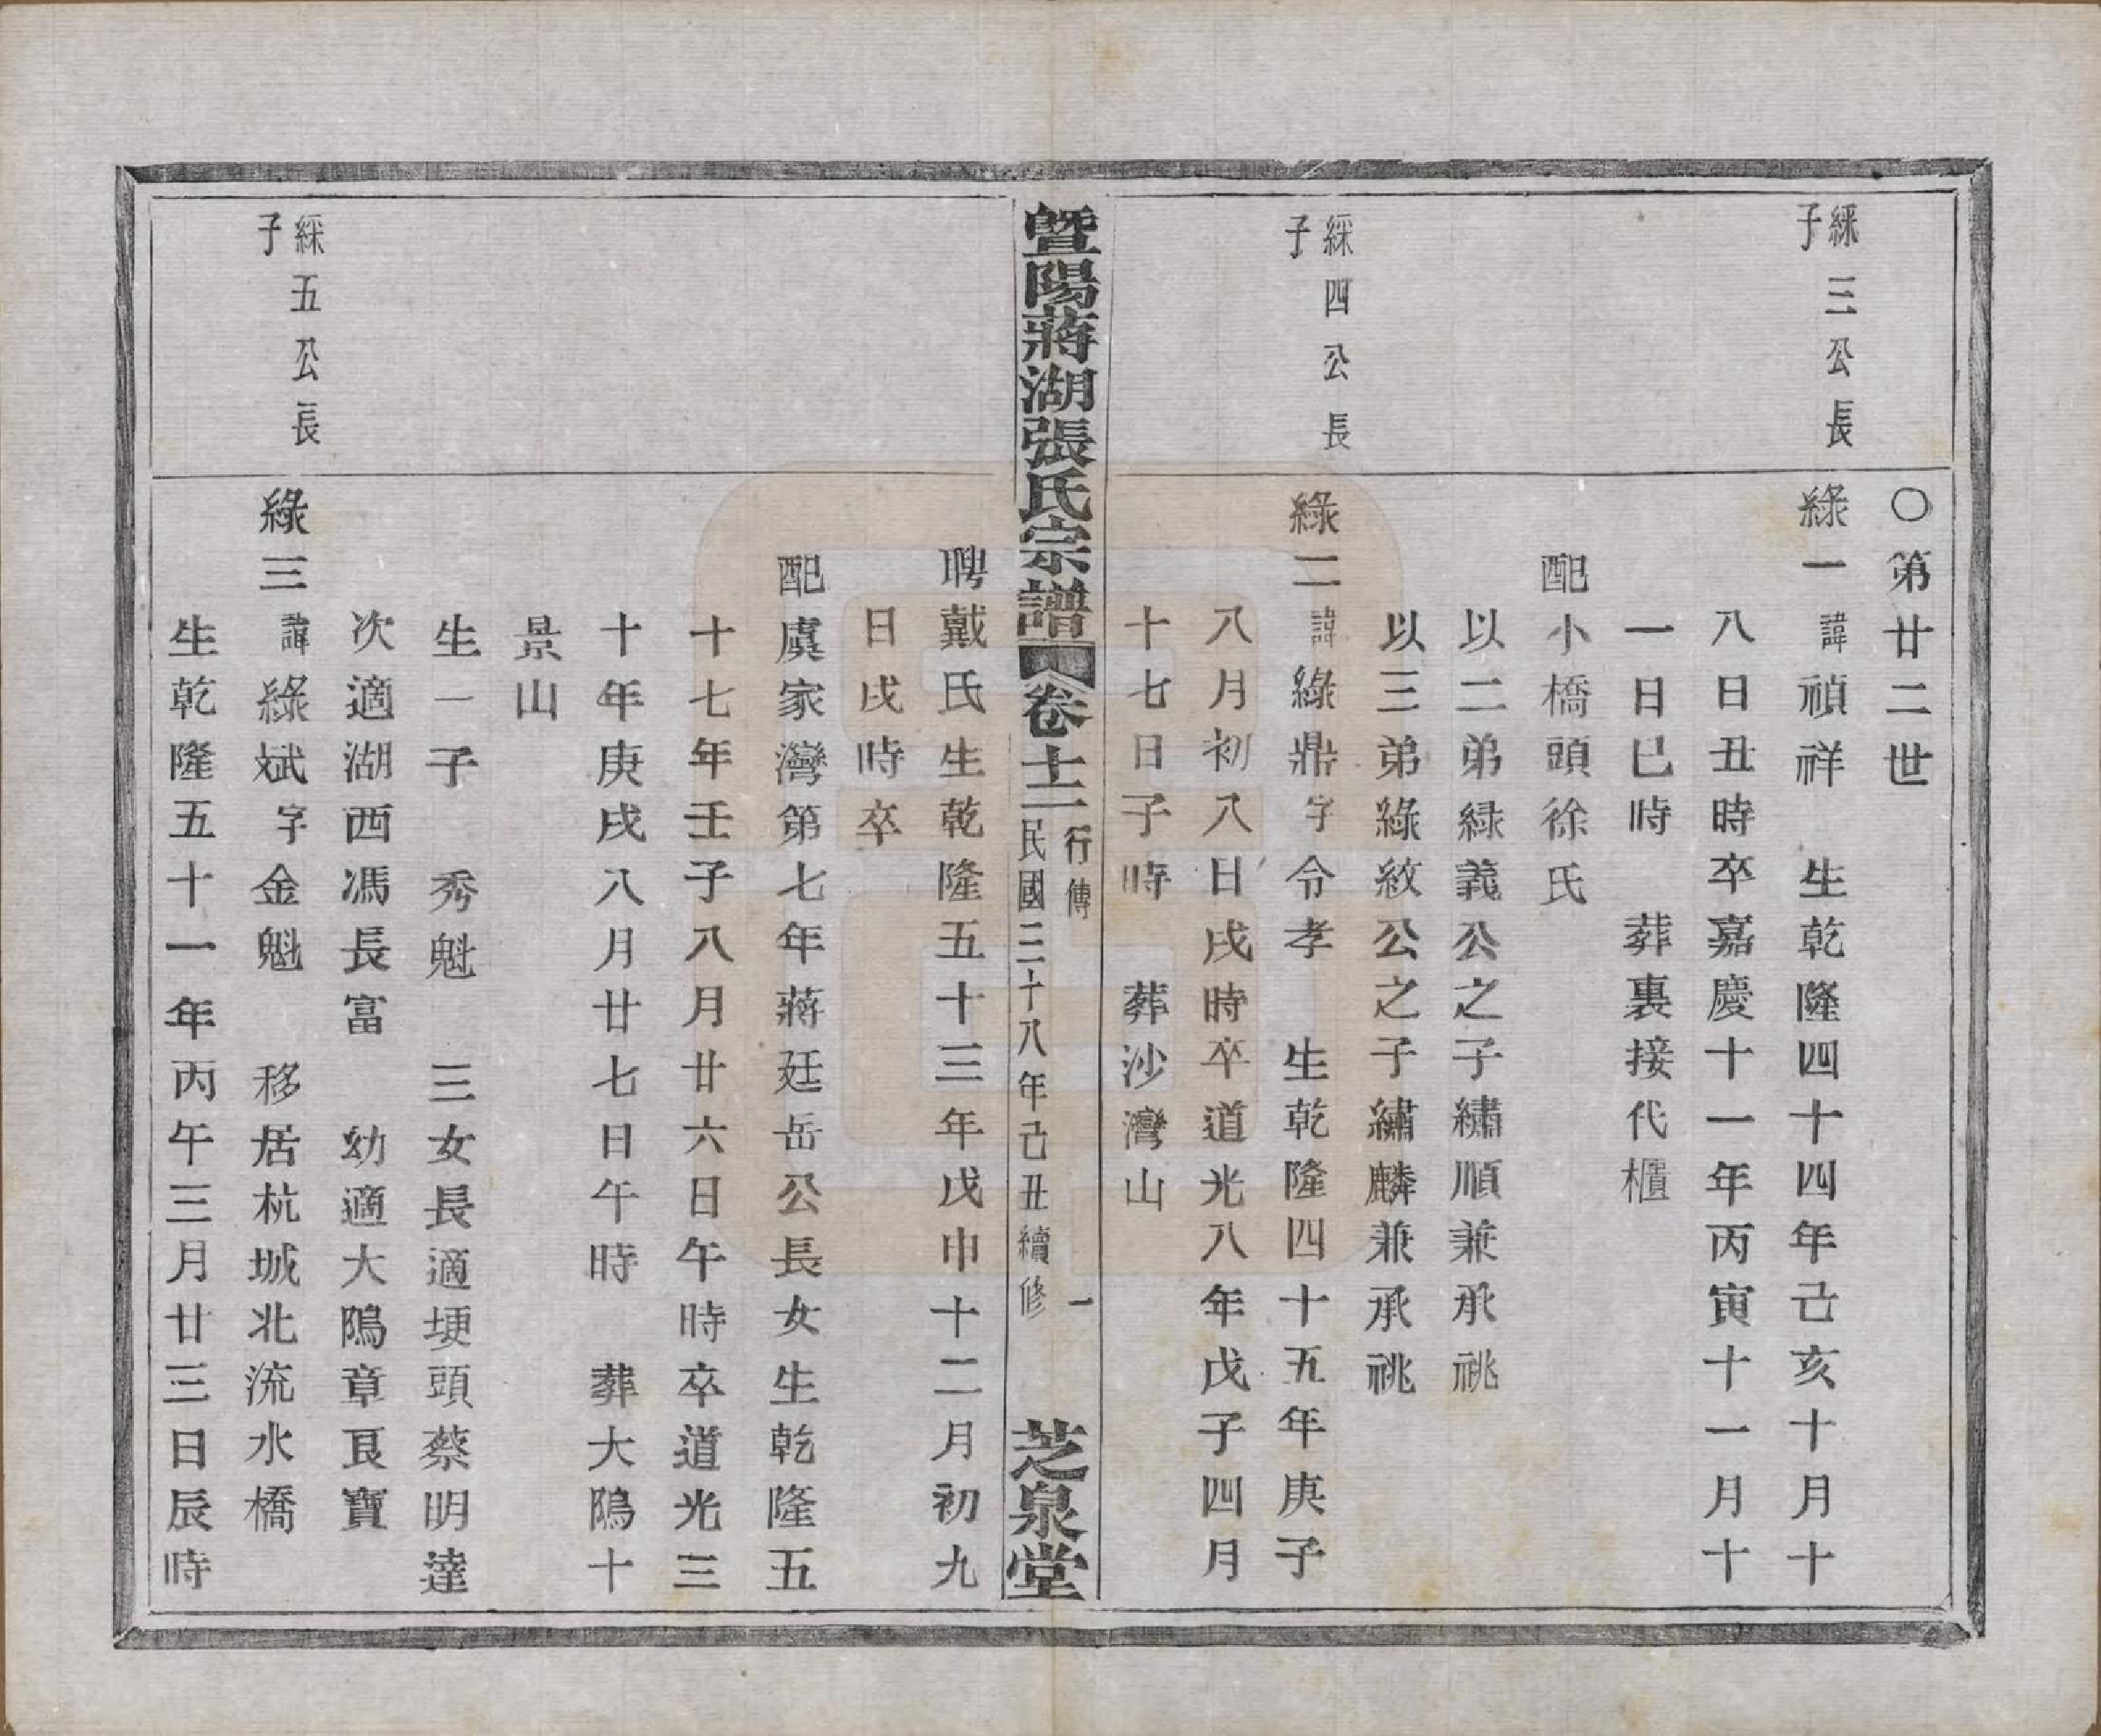 ○第廿二世
綵三公長
子
綠一諱禎祥　生乾隆四十四年己亥十月十
八日丑時卒嘉慶十一年丙寅十一月十
一日巳時　葬裏接代櫃
配小橋頭徐氏
以二弟綠義公之子繡順兼承祧
以三弟綠紋公之子繡麟兼承祧
綵四公長
子
綠二諱綠鼎字令孝　生乾隆四十五年庚子
八月初八日戌時卒道光八年戊子四月
十七日子時　葬沙灣山
暨陽蔣湖張氏宗譜　卷十二　行傳　一
民國三十八年己丑續修
芝泉堂
聘戴氏生乾隆五十三年戊申十二月初九
日戌時卒
配虞家灣第七年蔣廷岳公長女生乾隆五
十七年壬子八月廿六日午時卒道光三
十年庚戌八月廿七日午時　葬大隝十
景山
生一子　秀魁　三女長適埂頭蔡明達
次適湖西馮長富　幼適大隝章艮寶
綵五公長
子
綠三諱綠斌字金魁　移居杭城北流水橋
生乾隆五十一年丙午三月廿三日辰時